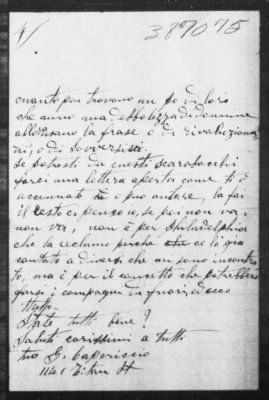 4/ 387075
quanto poi trovano un po di loro
che anno una debolezza di
la frase o di rivoluziona
rii, o di sovversivi.
se potesti da questi scarabocchi
farci una lettera aperta come ti è
accennato tu e puo autore, la fai
il resto ci penso io, se poi non vai
non vai, non è per Philadelphia
che la reclamo perche che ce lo già
cantato a diversi che mi sono incontra
to, ma è per il concetto che potrebbero
farsi i compagni di fuori, ed ecco
tutto.
State tutti bene?
Saluti carissimi a tutti
tuo G.
1141